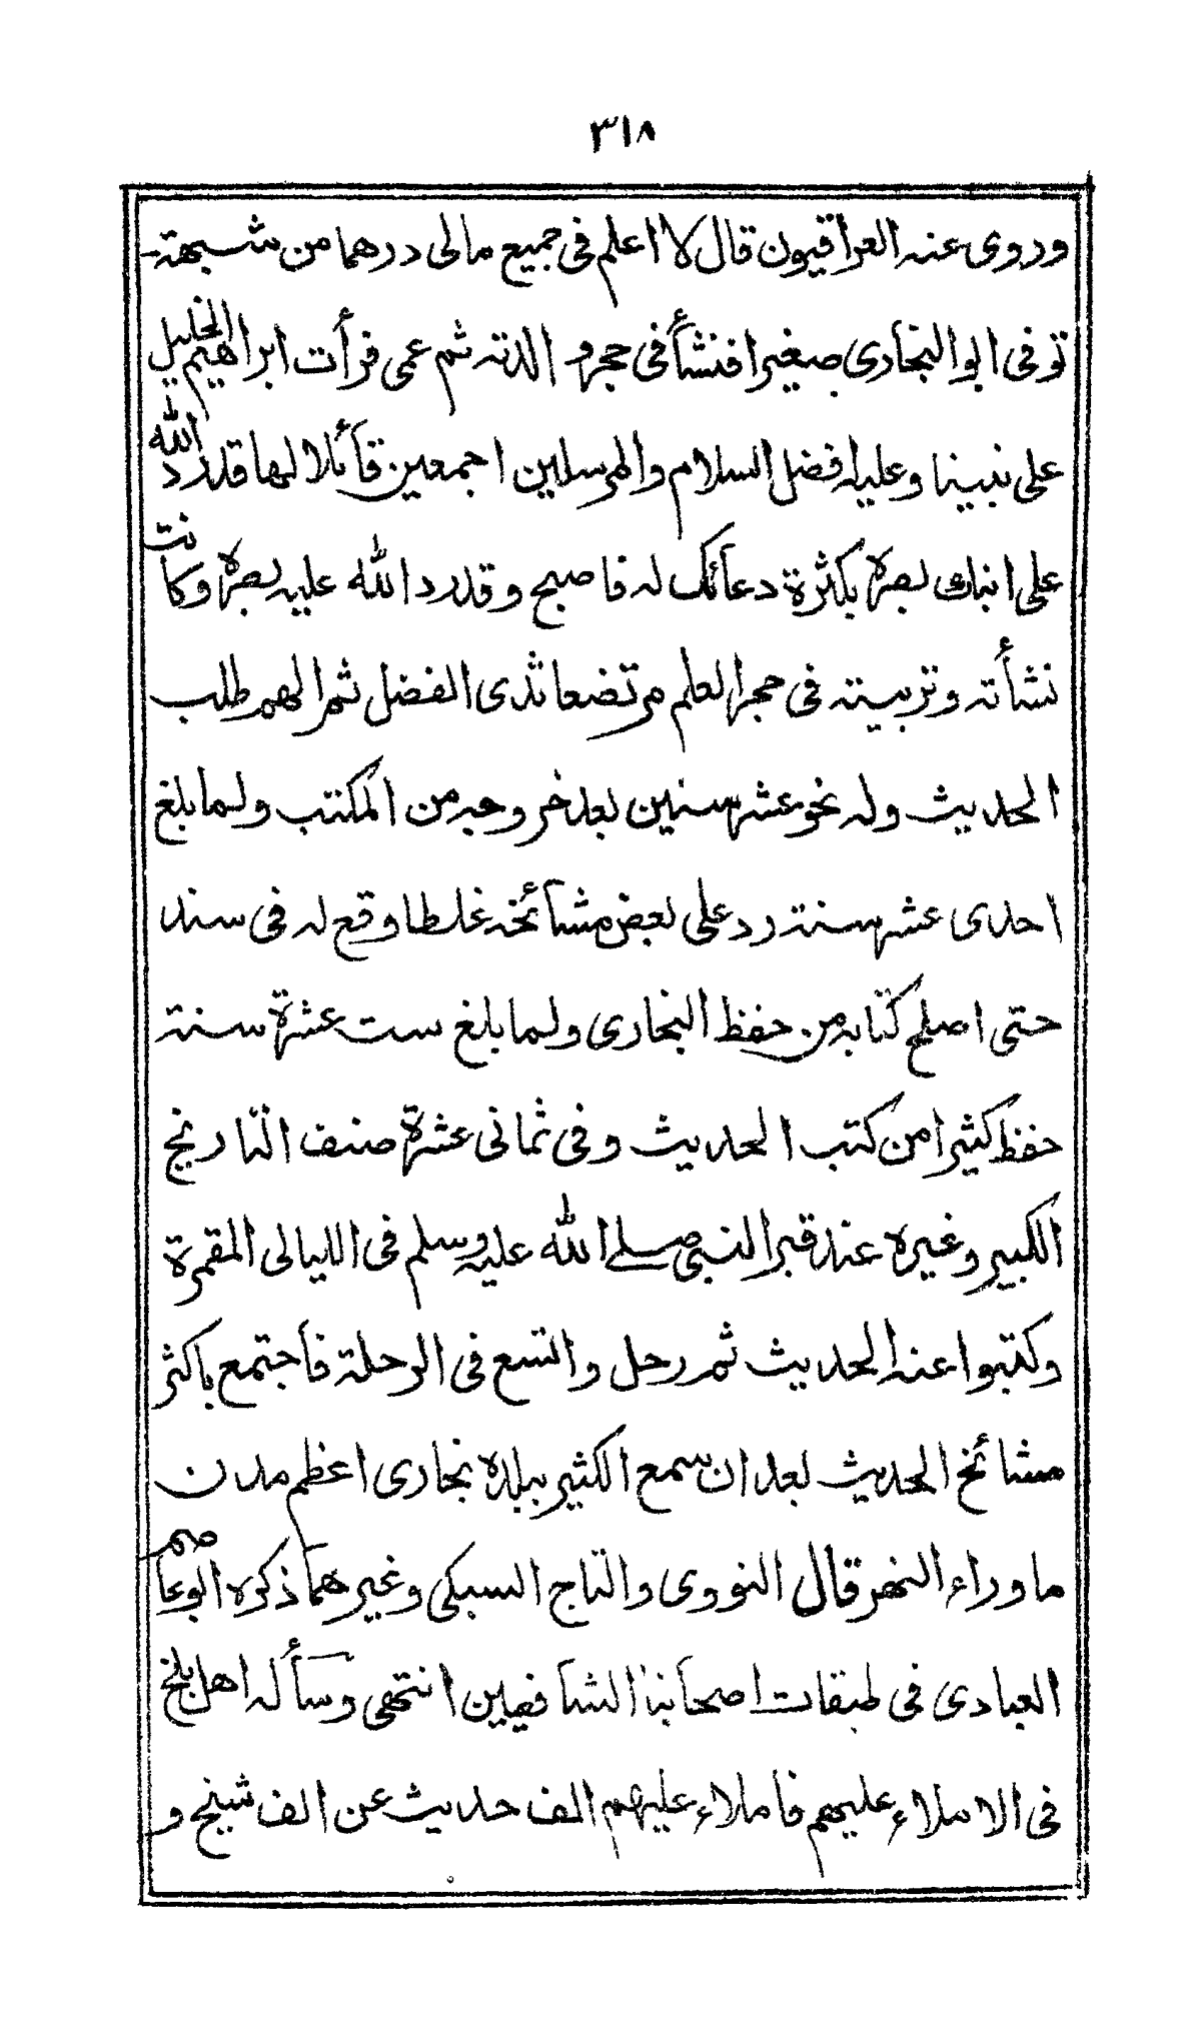 ٣١٨
وروى عنه العراقيون قال لا اعلم فى جميع مالى درهما من شبهة
توفى ابو البخارى صغيرا فنشأ فى حجر والدته ثم عمى فرأت ابراهيم الخليل
على نبينا وعليه افضل السلام والمرسلين اجمعين قآئلا لها قد رد الله
على ابنك بصره بكثرة دعآئك له فاصبح وقد رد الله عليه بصره وكانت
نشأته وتربيته فى حجر العلم مرتضعا ثدى الفضل ثم الهم طلب
الحديث وله نحو عشر سنين بعد خروجه من المكتب ولما بلغ
احدى عشر سنة رد على بعض مشآئخه غلطا وقع له فى سند
حتى اصلح كتابه من حفظ البخارى ولما بلغ ست عشرة سنة
حفظ كثيرا من كتب الحديث وفى ثمانى عشرة صنف التاريخ
الكبير وغيره عند قبر النبى صلے الله عليه وسلم فى الليالى المقمرة
وكتبوا عنه الحديث ثم رحل واتسع فى الرحلة فأجتمع باكثر
مشائخ الحديث بعد ان سمع الكثير ببلده بخارى اعظم مدن
ماوراء النهر قال النووى والتاج السبكى وغيرهما ذكره ابوعاصم
العبادى فى طبقات اصحآبنا الشآفعيين انتهى وسأله اهل بلخ
فى الاملاء عليهم فأملاء عليهم الف حديث عن الف شيخ و